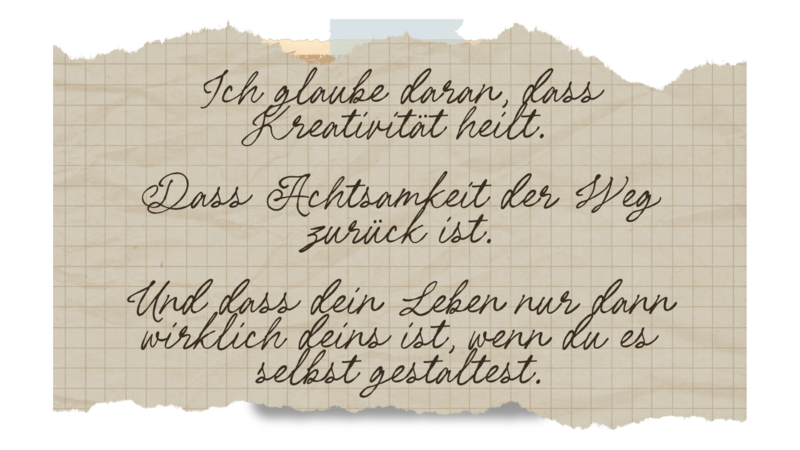 Ich glaube daran, dass
Kreativität heilt.
Dass Achtsamkeit der Weg
zurück ist.
Und dass dein Leben nur dann
wirklich deins ist, wenn du es
selbst gestaltest.